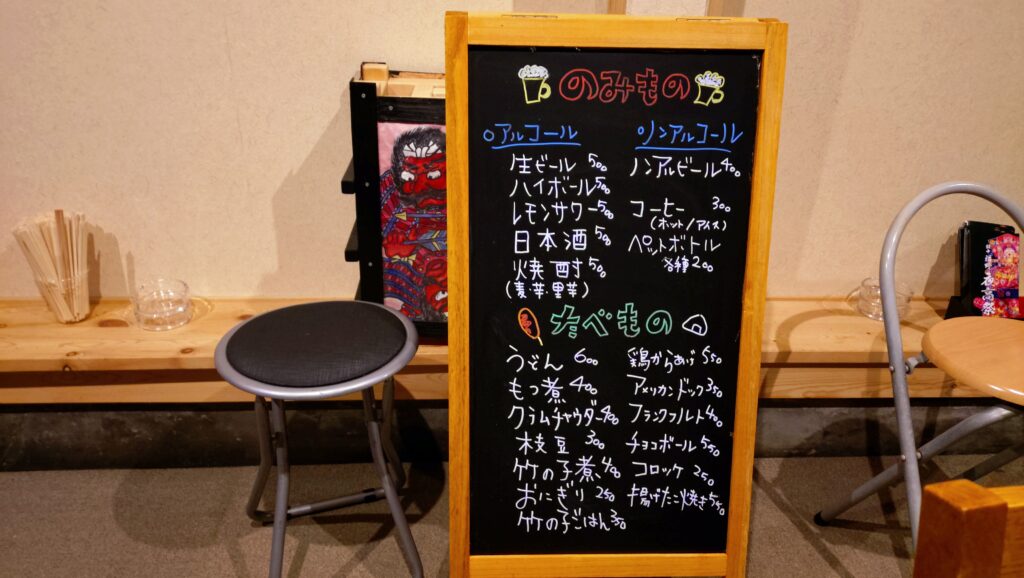 のみもの
○アルコール
生ビール 500
ハイボール 500
レモンサワー 500
日本酒 500
焼酎 500
(麦・芋・里芋)
○ノンアルコール
ノンアルビール 400
コーヒー 300
(ホット/アイス)
ペットボトル
各種 200
たべもの
うどん 600
もつ煮 400
クラムチャウダー 400
枝豆 300
竹の子煮 400
おにぎり 250
竹の子ごはん 350
鶏からあげ 550
アメリカンドック 350
フランクフルト 400
チョコボール 550
コロッケ 250
揚げたこ焼き 550